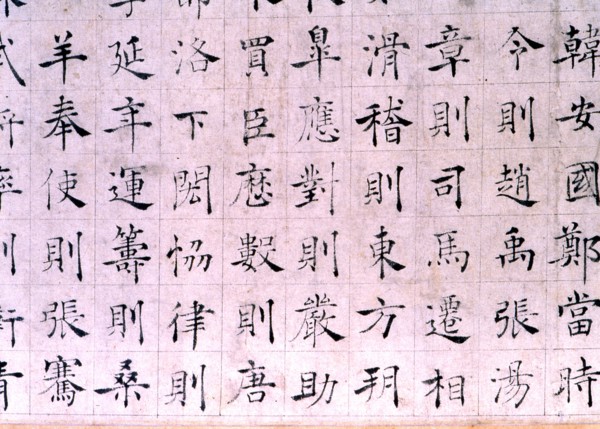 韓安國鄭當時
令則趙禹張湯
章則司馬遷相
滑稽則東方朔
皐應對則嚴助
買臣厯數則唐
洛下閎恊律則
延年運籌則桑
羊奉使則張騫